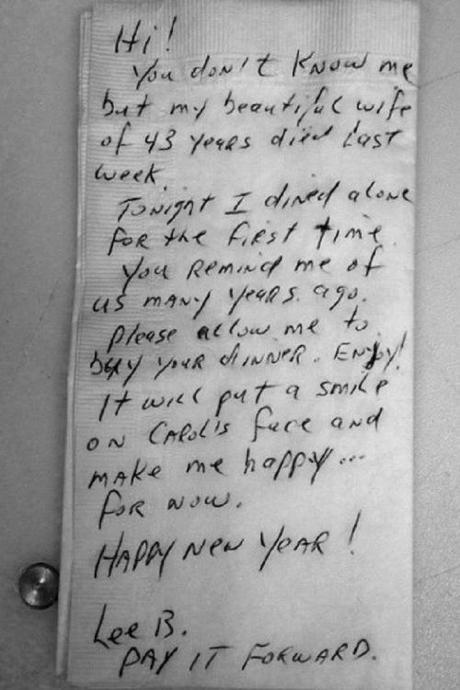 Hi!
You don't know me
but my beautiful wife
of 43 years died last
week.
Tonight I dined alone
for the first time.
You remind me of
us many years ago.
Please allow me to
buy your dinner. Enjoy!
It will put a smile
on Carol's face and
make me happy...
for now.
Happy New Year!
Lee B.
Pay it forward.